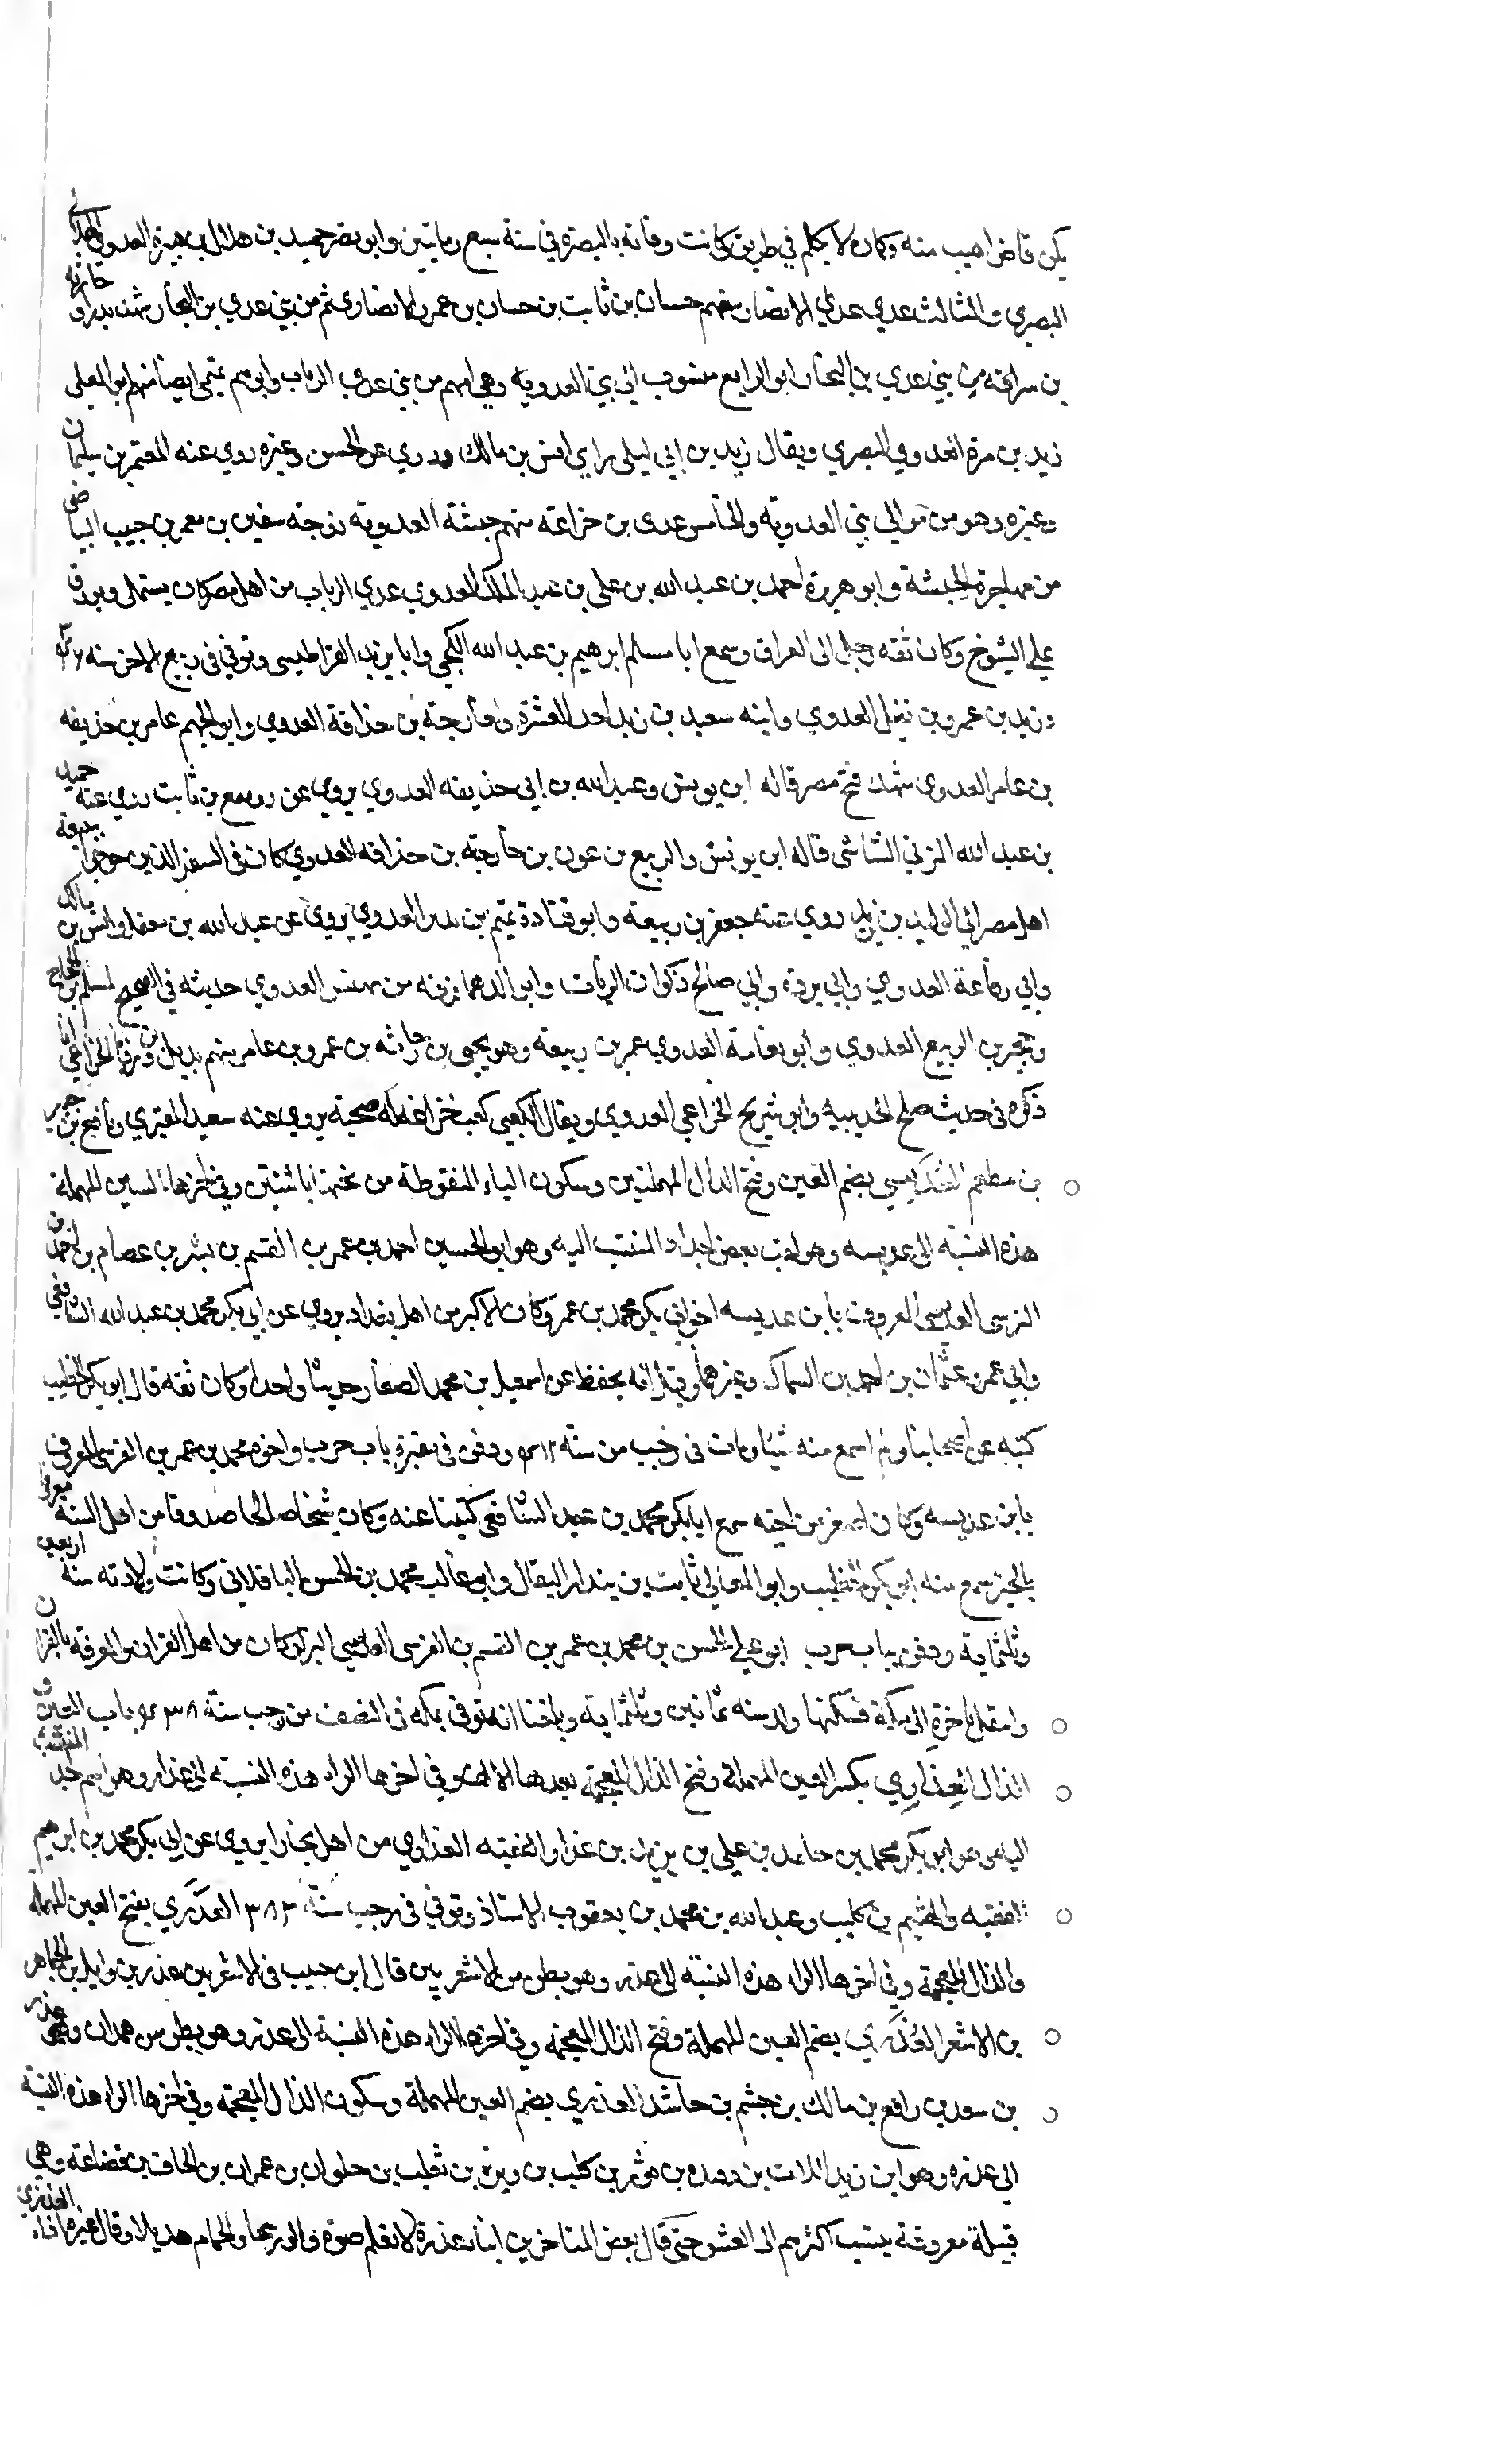 يكن قاض اهيب منه وكان لا يكلم في طريق وكانت وفاته بالبصرة في سنة سبع ومايتين وابو نصر حميد بن هلال بن هبيرة العدوي
البصري والثالث عدي عدي الانصار منهم حسان بن ثابت بن حسان بن عمرو الانصاري ثم من بني عدي بن النجار شهد بدرا وحارثة
بن سراقة من بني عدي بن النجار ابو الرابع منسوب الى بني العدوية وهي امهم من بني عدي الرباب وابوهم تميمي ايضا منهم ابو المعلى
زيد بن مرة العدوي البصري ويقال زيد بن ابي ليلى راي انس بن مالك وروي عن الحسن وغيره روي عنه المعتمر بن سليمان
وغيره وهو من موالي بني العدوية والخامس عدي بن خزاعة منهم حبشة العدوية زوجة سفين بن معمر بن حبيب البياضي
من مهاجرة الحبشة وابو هريرة احمد بن عبد الله بن علي بن عبد الملك العدوي عدي الرباب من اهل مصر كان يستملي ويورق
علي الشيوخ وكان ثقة رحل الى العراق وسمع ابا مسلم ابرهيم بن عبد الله الكجي وابا يزيد القراطيسي وتوفي في ربيع الاخر سنة
وزيد بن عمرو بن نفيل العدوي وابنه سعيد بن زيد احد العشرة وخارجة بن حذافة العدوي وابو الجهم عامر بن حذيفة
بن عامر العدوي شهد فتح مصر قاله ابن يونس وعبد الله بن ابي حذيفة العدوي يروي عن رويفع بن ثابت روي عنه حميد
بن عبد الله المزني الشاشي قاله ابن يونس والربيع بن عون بن خارجة بن حذافة العدوي كان في السفر الذين خرجوا ببيعة
اهل مصر الى الوليد بن يزيد روي عنه جعفر بن ربيعة وابو قتادة تميم بن نذير العدوي يروي عن عبد الله بن مغفل وانس بن مالك
وابي رفاعة العدوي وابي بردة وابي صالح ذكوان الزيات وابو الدهما قرفة بن بهيس العدوي حديثه في الصحيح لمسلم بن الحجاج
وحجير بن الربيع العدوي وابو نعامة العدوي عمر بن ربيعة وهو يحيى بن حارثة بن عمرو بن عامر منهم بديل بن ورقا الخزاعي
ذكره في حديث صلح الحديبية وابو شريح الخزاعي العدوي ويقال الكعبي كعب خزاعة له صحبة يروي عنه سعيد المقبري ونافع بن جبير
بن مطعم العُدَيسي بضم العين وفتح الدال المهملتين وسكون الياء المنقوطة من تحتها باثنتين وفي اخرها السين المهملة
هذه النسبة الى عديسه وهو لقب بعض اجداد المنتسب اليه وهو ابو الحسين احمد بن عمر بن القسم بن بشر بن عصام بن احمد
النرسي العديسي المعروف بابن عديسه اخو ابي بكر محمد بن عمر وكان الاكبر من اهل بغداد يروي عن ابي بكر محمد بن عبد الله الشافعي
وابي عمرو عثمان بن احمد بن السماك وغيرهما وقيل انه يحفظ عن اسمعيل بن محمد الصفار حديثا واحدا وكان ثقة قال ابو بكر الخطيب
كتبه عن اصحابنا ولم اسمع منه شيئا ومات في رجب من سنة ودفن في مقبرة باب حرب واخوه محمد بن عمر بن النرسي المعروف
بابن عديسه وكان اصغر من اخيه سمع ابا بكر محمد بن عبد الشافعي كتبنا عنه وكان شيخا صالحا صدوقا من اهل السنة معروفا
بالخير سمع منه ابو بكر الخطيب وابو المعالي ثابت بن بندار البقال وابو غالب محمد بن الحسن الباقلاني وكانت ولادته سنة اربعين
وثلثماية ودفن بباب حرب ابو علي الحسن بن محمد بن عمر بن القسم بن النرسي العديسي البزاز كان من اهل القران والمعرفة بالقران
وانتقل باخرة الى مكة فسكنها ولد سنة ثمانين وثلثماية وبلغنا انه توفي بمكة في النصف من رجب سنة باب العين و
الذال العِذاري بكسر العين المهملة وفتح الذال المعجمة بعدها الالف وفي اخرها الراء هذه النسبة الى عذار وهو اسم جد المنتسب
اليه وهو ابو بكر محمد بن حامد بن علي بن يزداد بن عذار الفقيه العذاري من اهل بخارا يروي عن ابي بكر محمد بن ابرهيم
الفقيه والهثيم بن كليب وعبد الله بن محمد بن يعقوب الاستاذ وتوفي في رجب سنة ٣٨٣ العذري بفتح العين المهملة
والذال المعجمة وفي اخرها الراء هذه النسبة الى عذر وهو بطن من الاشعريين قال ابن حبيب في الاشعريين عذر بن وايل بن الجماهر
بن الاشعر العُذَري بضم العين المهملة وفتح الذال المعجمة وفي اخرها الراء هذه النسبة الى عذر وهو بطن من همدان وهو عذر
بن سعد بن رافع بن مالك بن جشم بن حاشد العذري بضم العين المهملة وسكون الذال المعجمة وفي اخرها الراء هذه النسبة
الى عذره وهو ابن زيد اللات بن رفيدة بن ثور بن كلب بن وبرة بن تغلب بن حلوان بن عمران بن الحاف بن قضاعة وهي
قبيلة معروفة ينسب اكثرهم الى العشق حتى قال بعض المتاخرين العذري